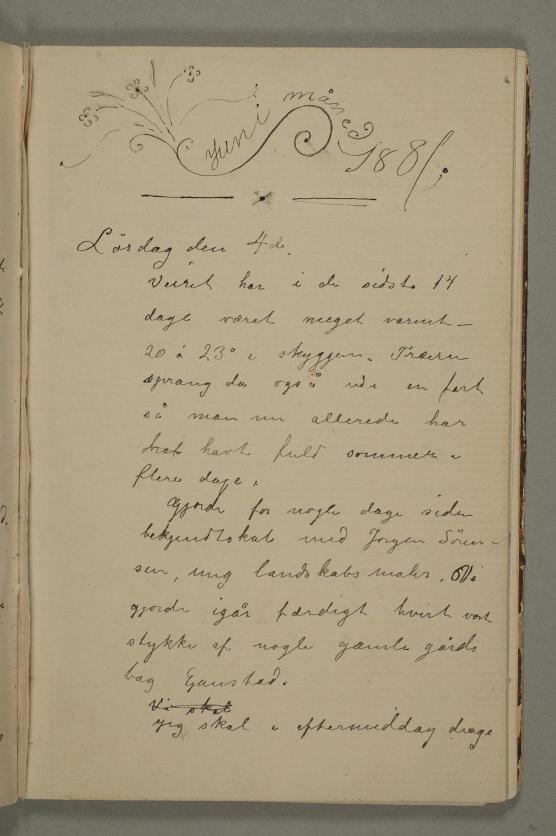 Juni måned 1881.
Lördag den 4de.
Veiret har i de sidste 14
dage været meget varmt —
20 à 23° i skyggen. Træerne
sprang da også ud i en fart
så man nu allerede har
havt fuld sommer i
flere dage.
Gjorde for nogle dage siden
bekjendtskab med Jørgen Sören-
sen, ung landskabsmaler. Vi
gjorde igår færdigt hvert vort
stykke af nogle gamle gårde
bag Grimstad.
Vi skal
Jeg skal i eftermiddag drage